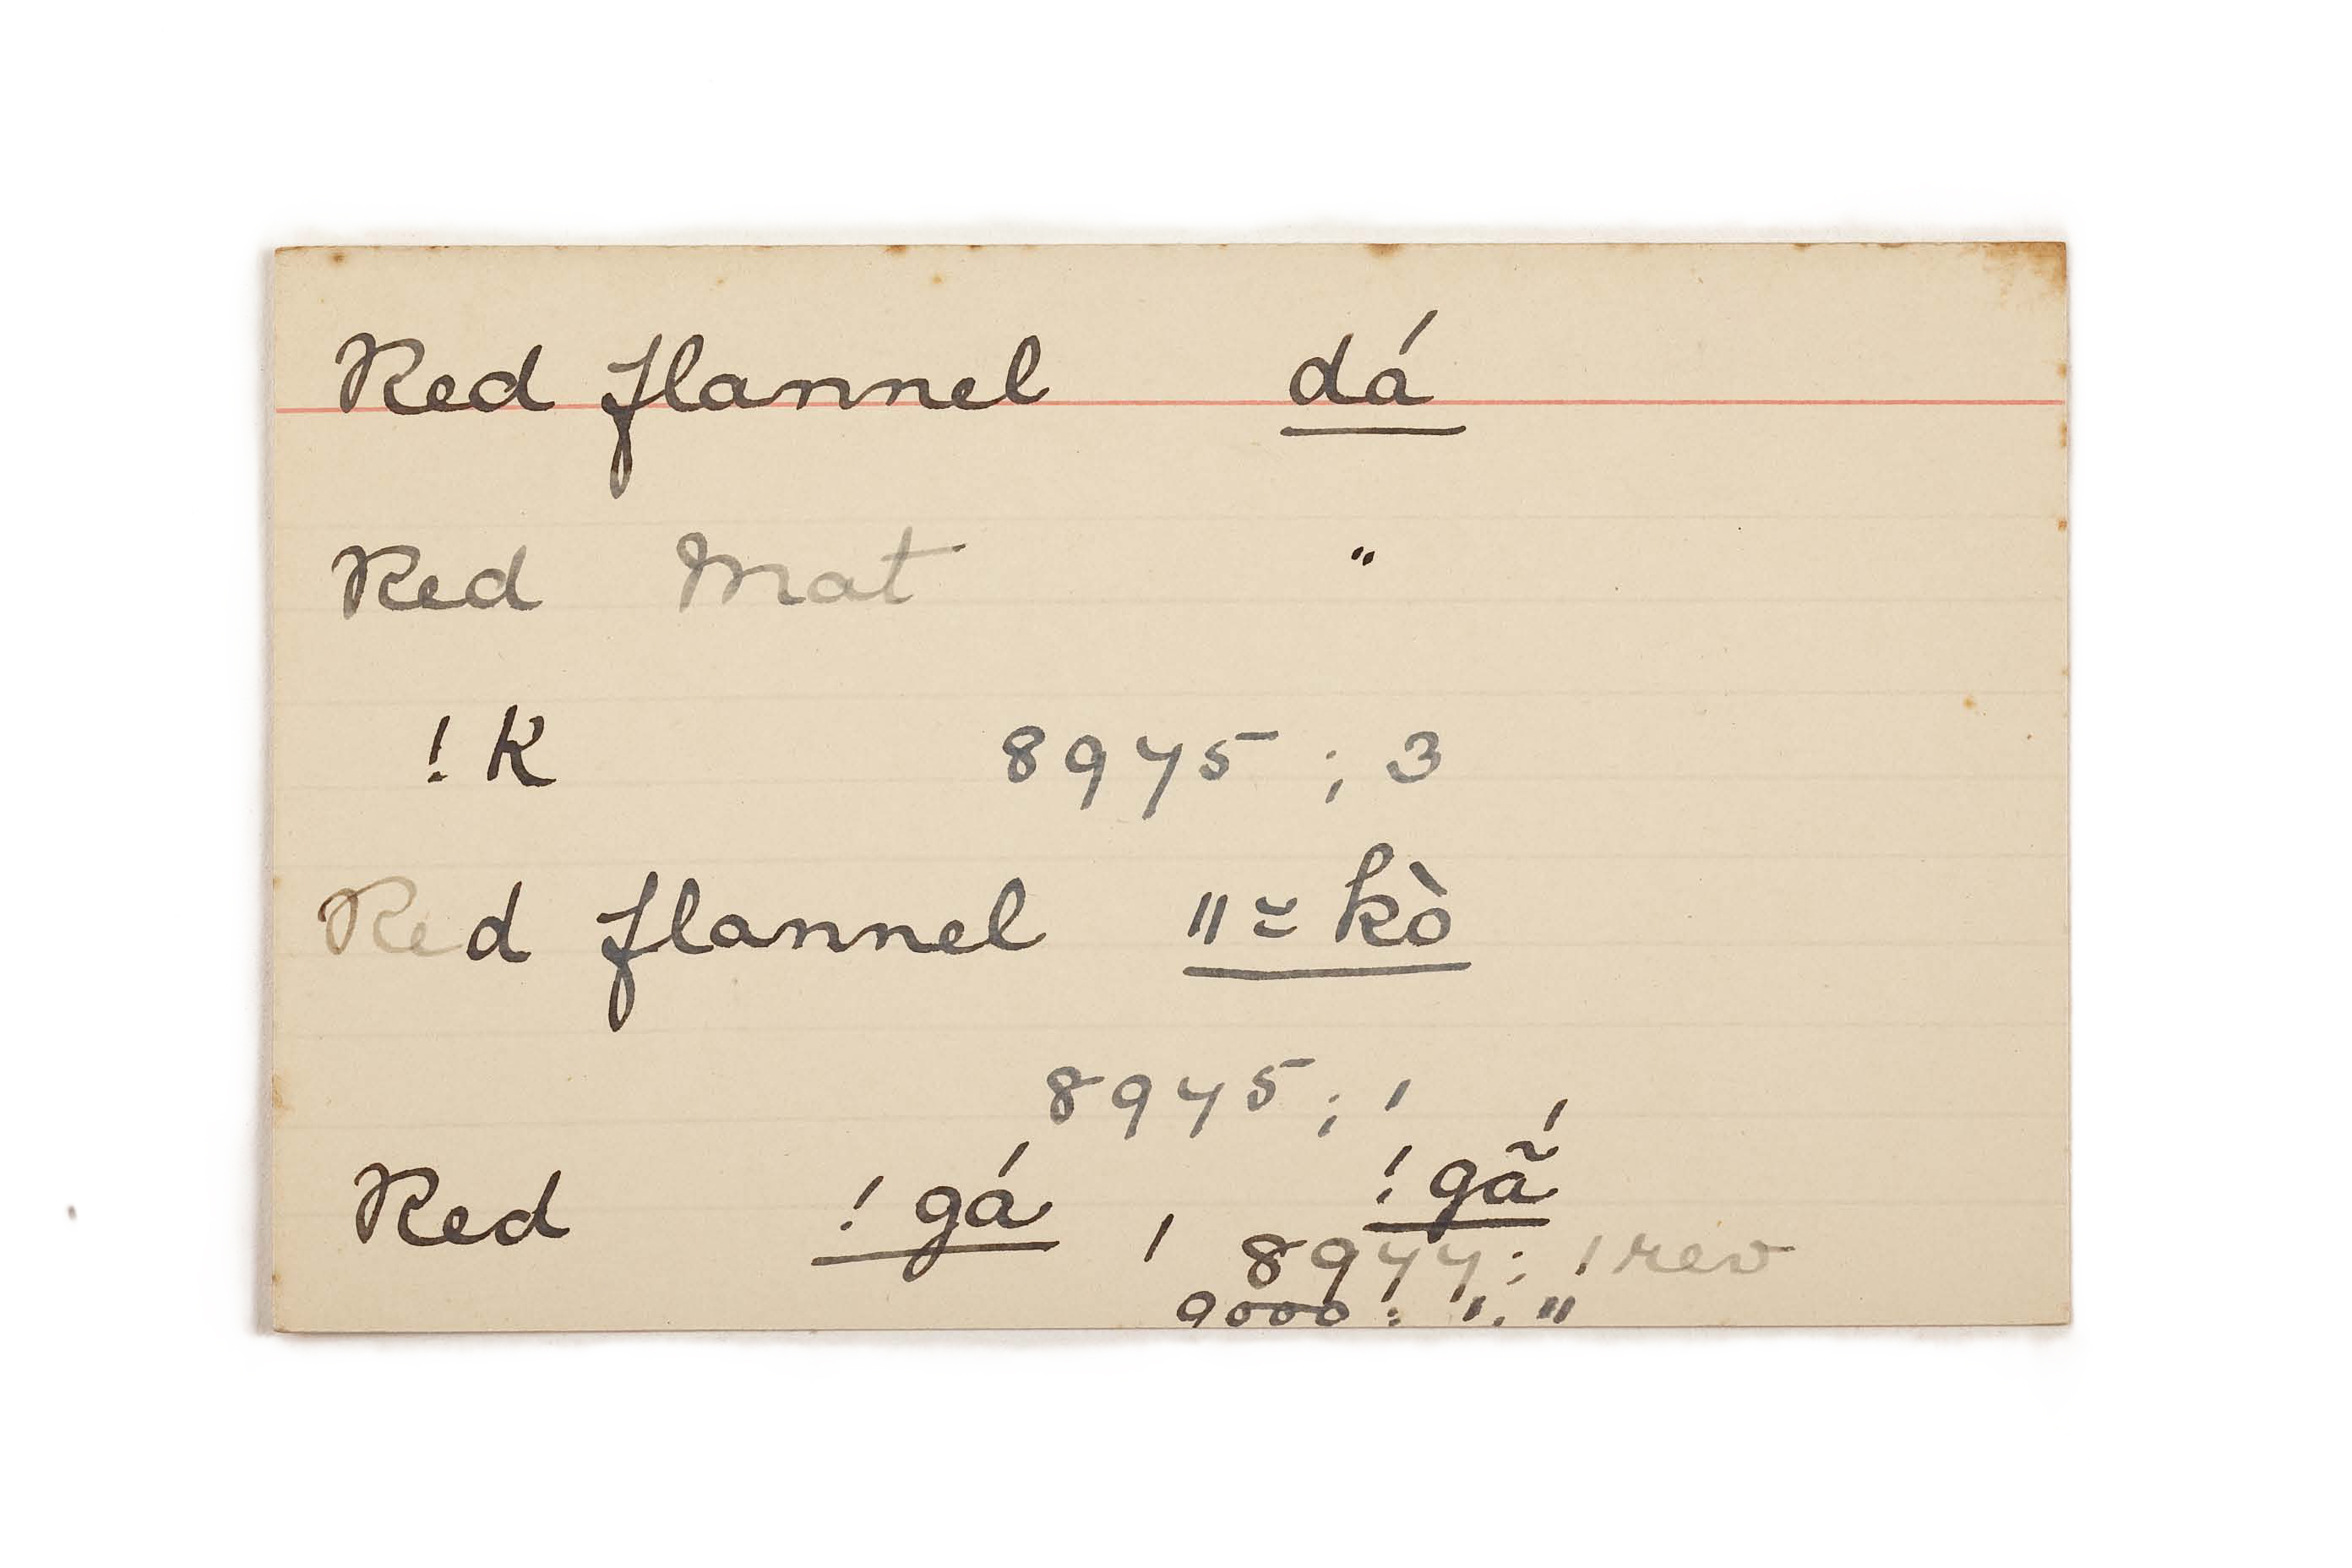 Red flannel dá
Red Mat "
!k 8975 ; 3
Red flannel ǁ≈kò
8975 ; 1
Red !gá , !gã́
8977 : 1 rev
9000 : ". "